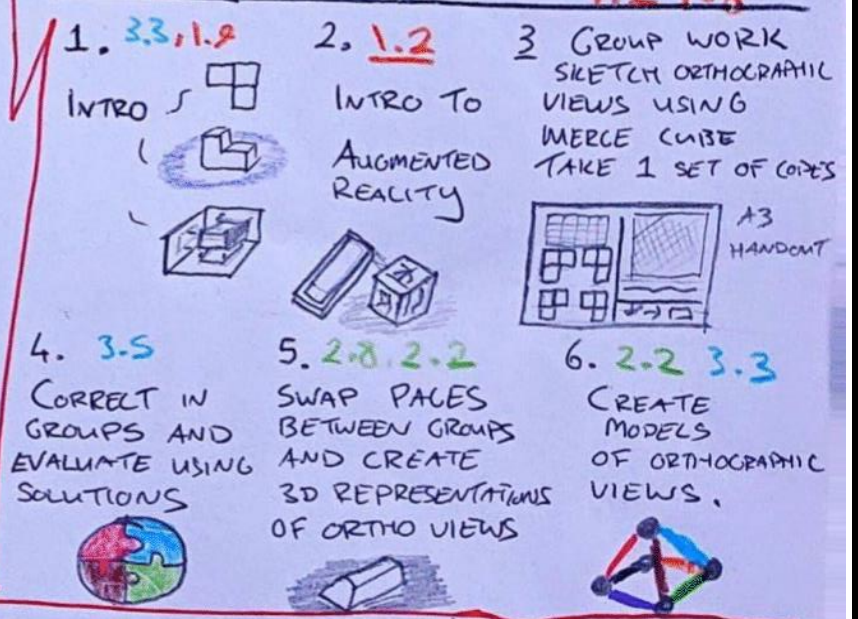 1. 3.3, 1.9
INTRO
2. 1.2
INTRO TO
AUGMENTED
REALITY
3 GROUP WORK
SKETCH ORTHOGRAPHIC
VIEWS USING
MERGE CUBE
TAKE 1 SET OF CODES
A3
HANDOUT
4. 3.5
CORRECT IN
GROUPS AND
EVALUATE USING
SOLUTIONS
5. 2.8. 2.2
SWAP PAGES
BETWEEN GROUPS
AND CREATE
3D REPRESENTATIONS
OF ORTHO VIEWS
6. 2.2 3.3
CREATE
MODELS
OF ORTHOGRAPHIC
VIEWS.